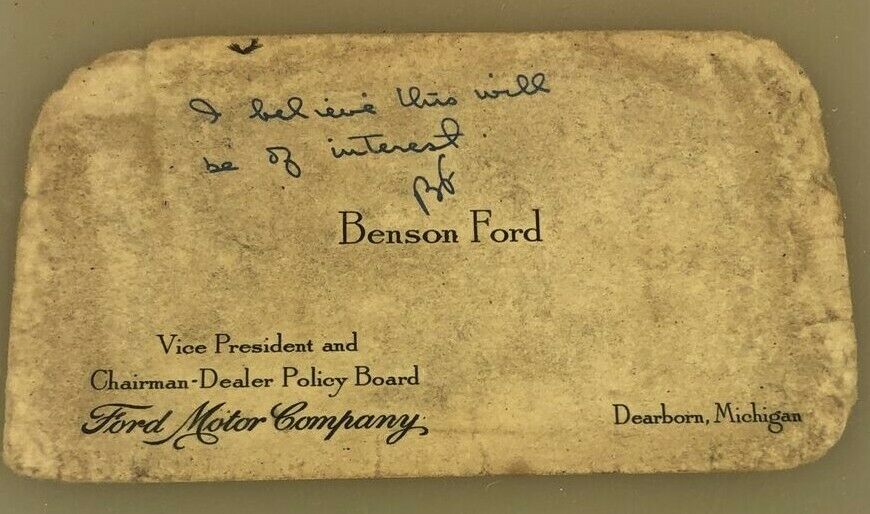 I believe this will
be of interest.
BF
Benson Ford
Vice President and
Chairman-Dealer Policy Board
Ford Motor Company
Dearborn, Michigan